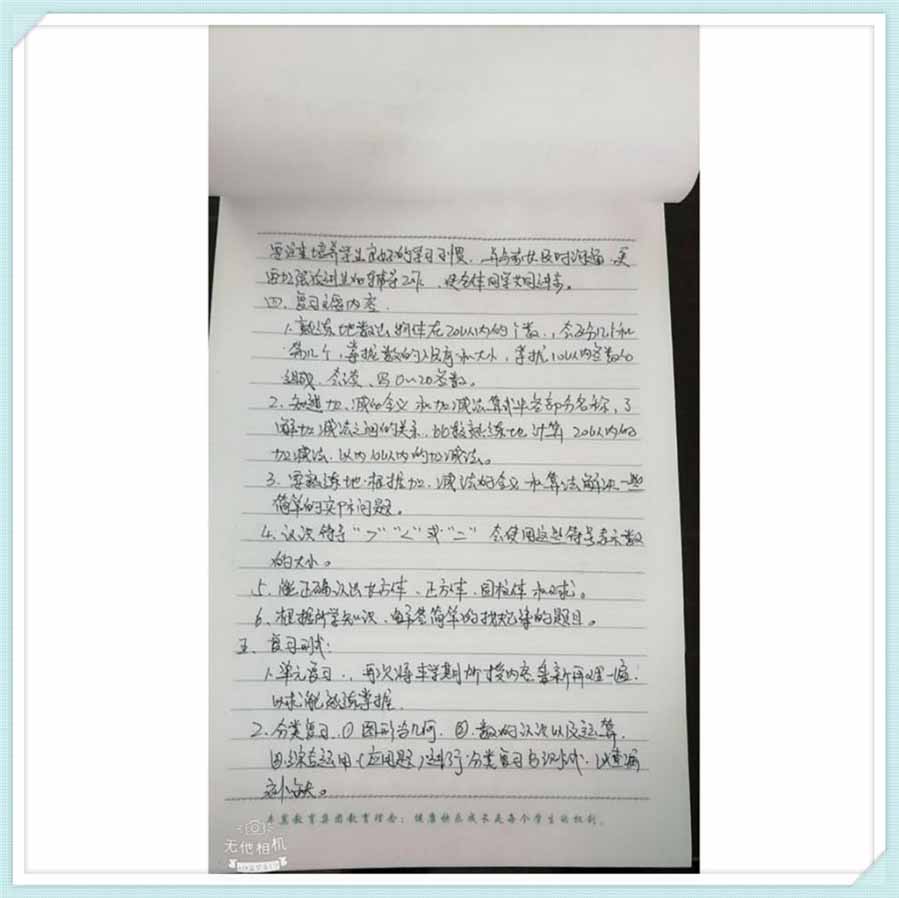 要注意培养学生良好的学习习惯,与家长及时沟通,更
要加强后进生的辅导工作,使全体同学共同进步。
四、复习主要内容
1、熟练地数出物体在20以内的个数,会区分几个和
第几个,掌握数的顺序和大小,掌握10以内各数的
组成,会读、写0~20各数。
2、知道加、减的含义和加减法算式中各部分名称,了
解加减法之间的关系,比较熟练地计算20以内的
加减法,以内10以内的加减法。
3、要熟练地根据加、减法的含义和算法解决一些
简单的实际问题。
4、认识符号“>”“<”或“=”会使用这些符号表示数
的大小。
5、能正确识认长方体、正方体、圆柱体和球。
6、根据所学知识,解答简单的找规律的题目。
五、复习形式:
1、单元复习,再次将本学期所授内容重新再理一遍,
以求能熟练掌握
2、分类复习,①图形与几何,②数的认识以及运算,
综合运用(应用题)进行分类复习与测试,以查漏
补缺。
教育集团教育理念:健康快乐成长是每个学生的权利。
无他相机